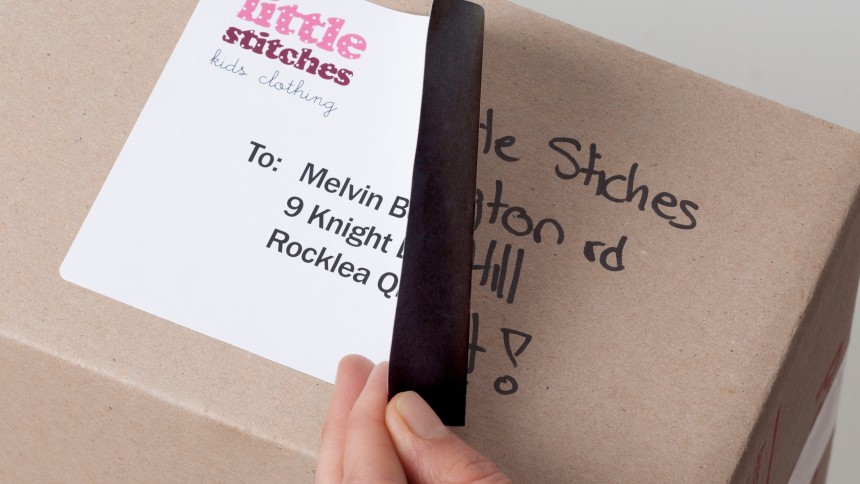 little
stitches
kids clothing
To: Melvin B
9 Knight
Rocklea Q
tle Stiches
gton rd
Hill
!